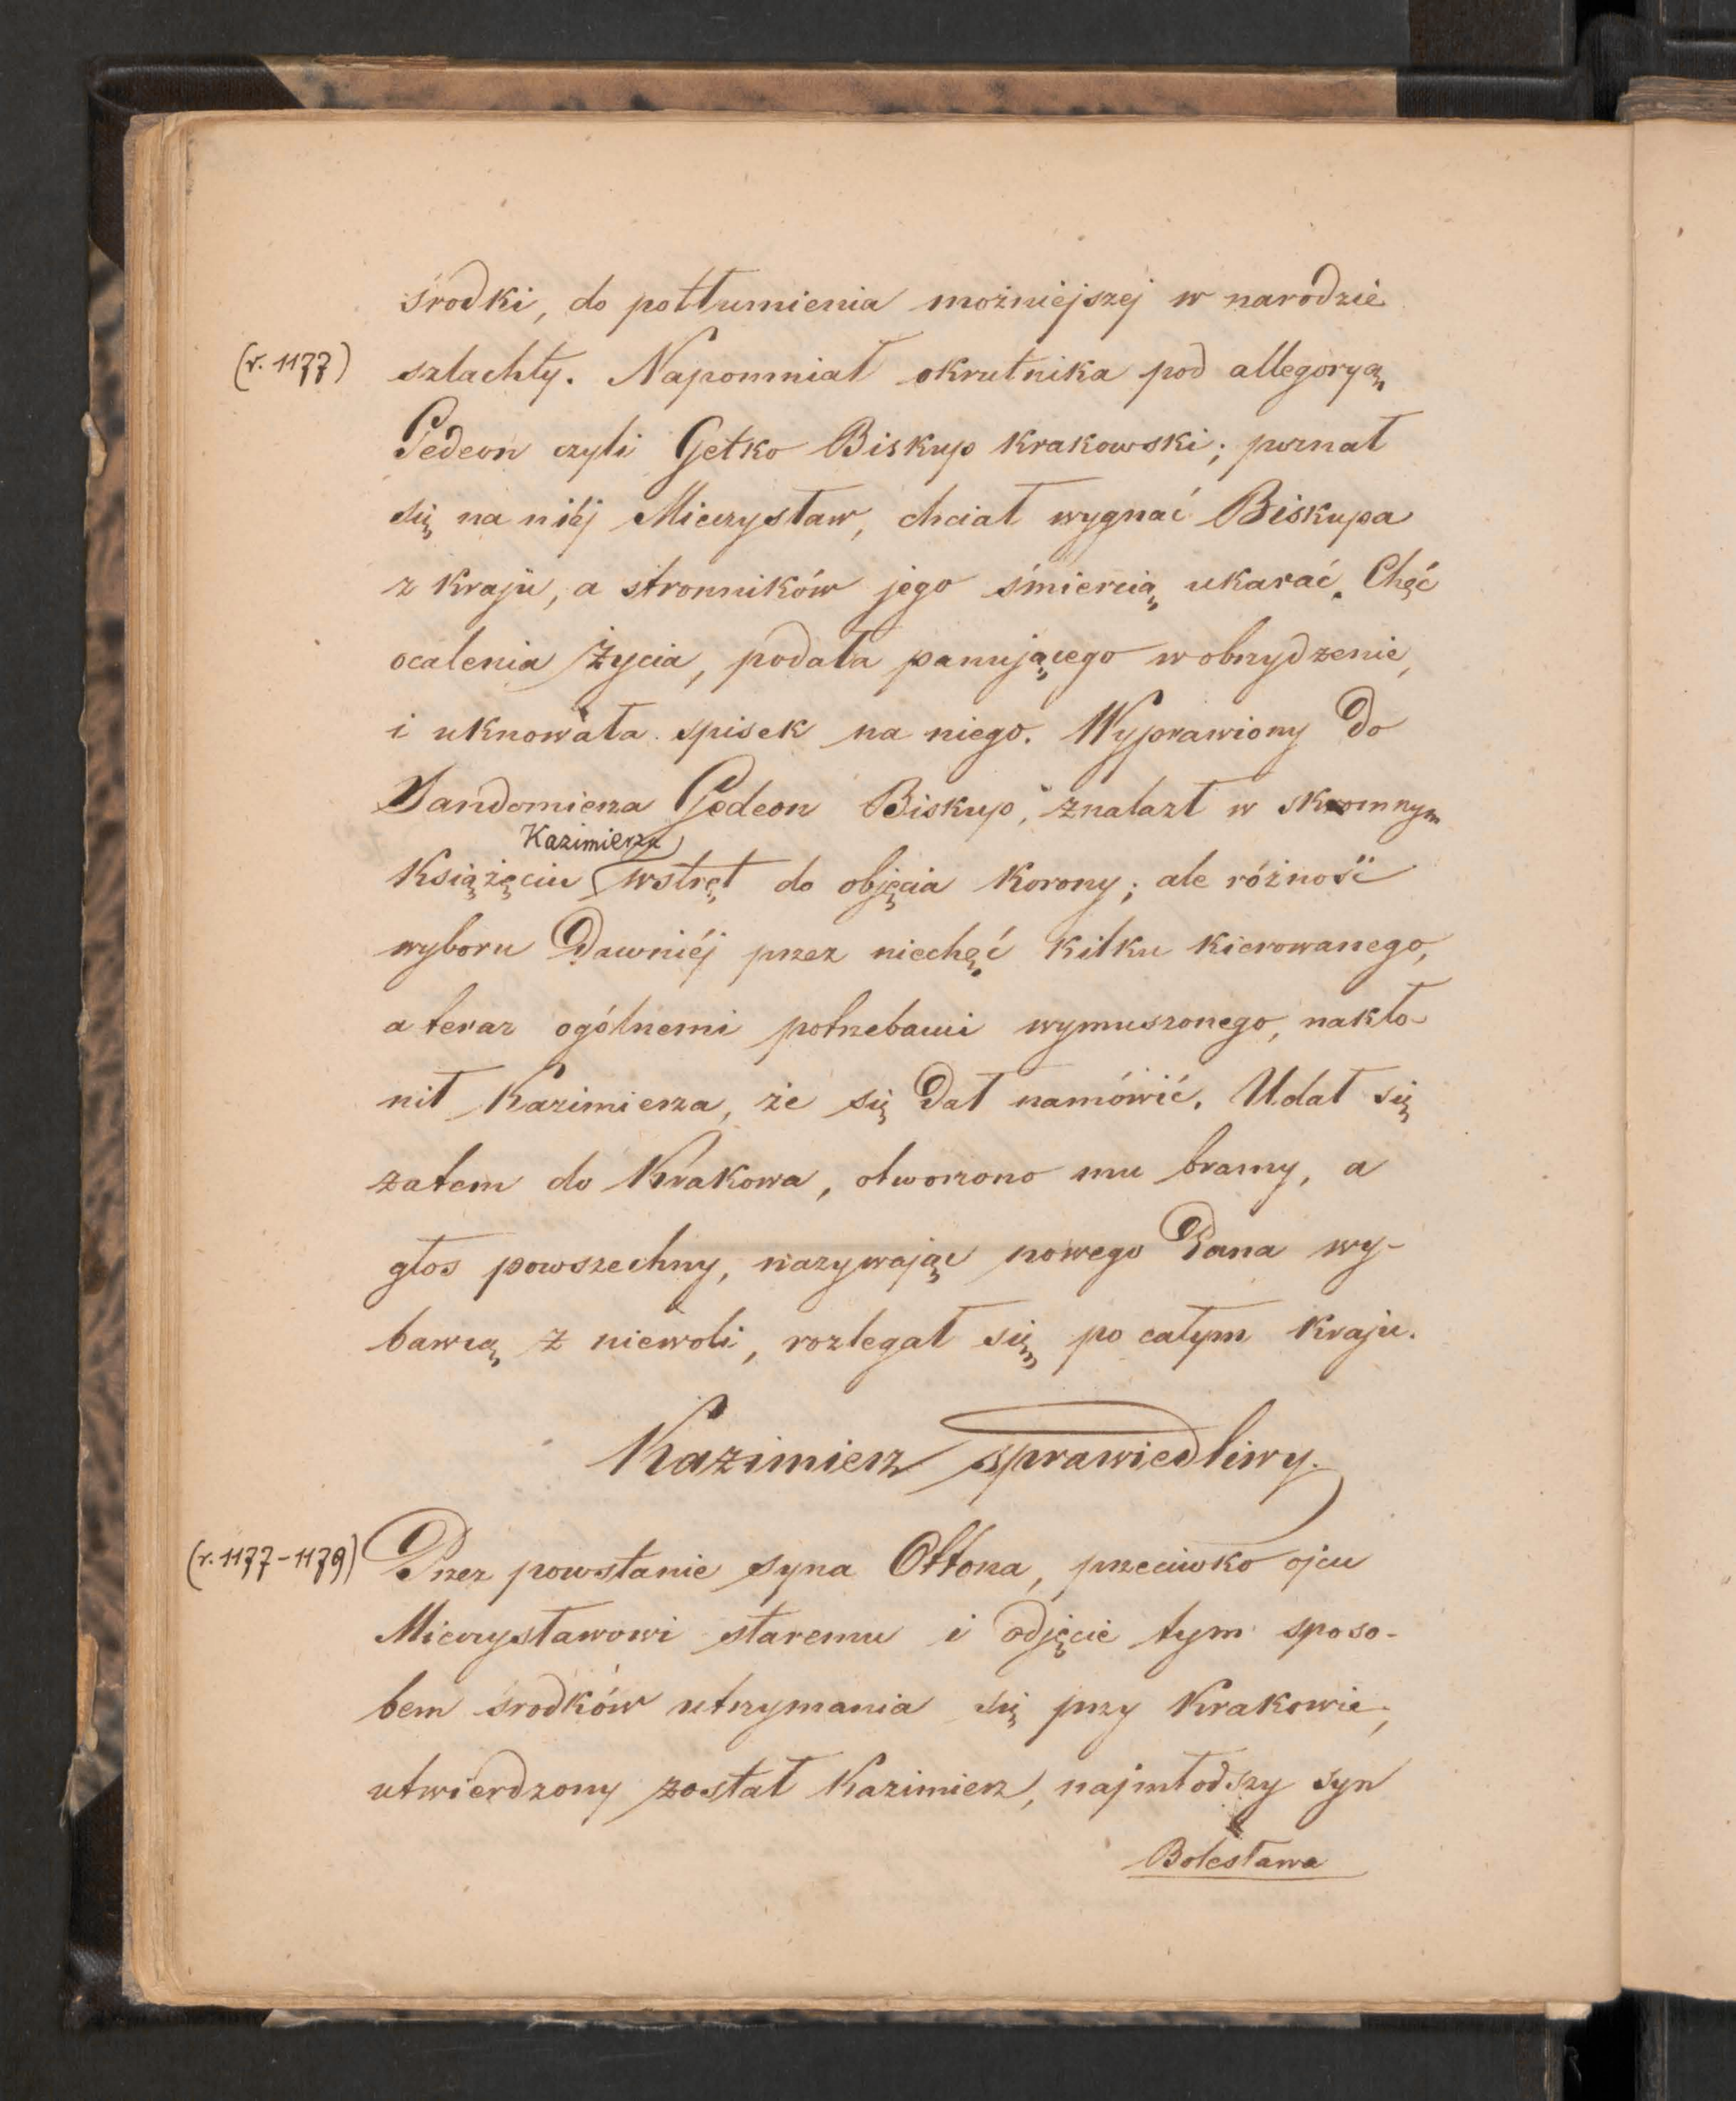 środki, do potłumienia możniejszej w narodzie
(r. 1177) szlachty. Napomniał okrutnika pod allegoryą
Gedeon czyli Getko Biskup Krakowski; poznał
się na niéj Mieczysław, chciał wygnać Biskupa
z kraju, a stronników jego śmiercią ukarać. Chęć
ocalenia życia, podała panującego w obrzydzenie,
i uknowała spisek na niego. Wyprawiony do
Sandomierza Gedeon Biskup, znalazł w skromnym
Kazimierzu
Książęciu wstręt do objęcia Korony; ale różność
wyboru dawniéj przez niechęć kilku kierowanego,
a teraz ogólnemi potrzebami wymuszonego, nakło-
nił Kazimierza, że się dał namówić. Udał się
zatem do Krakowa, otworzono mu bramy, a
głos powszechny, nazywając nowego Pana wy-
bawcą z niewoli, rozlegał się po całym kraju.
Kazimierz sprawiedliwy.
(r. 1177-1179) Przez powstanie syna Ottona, przeciwko ojcu
Mieczysławowi staremu i odjęcie tym sposo-
bem środków utrzymania się przy Krakowie,
utwierdzony został Kazimierz, najmłodszy syn
Bolesława